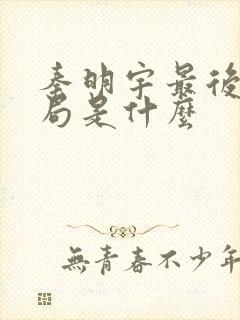 秦明宇最後
局是什麼
無青春不少年